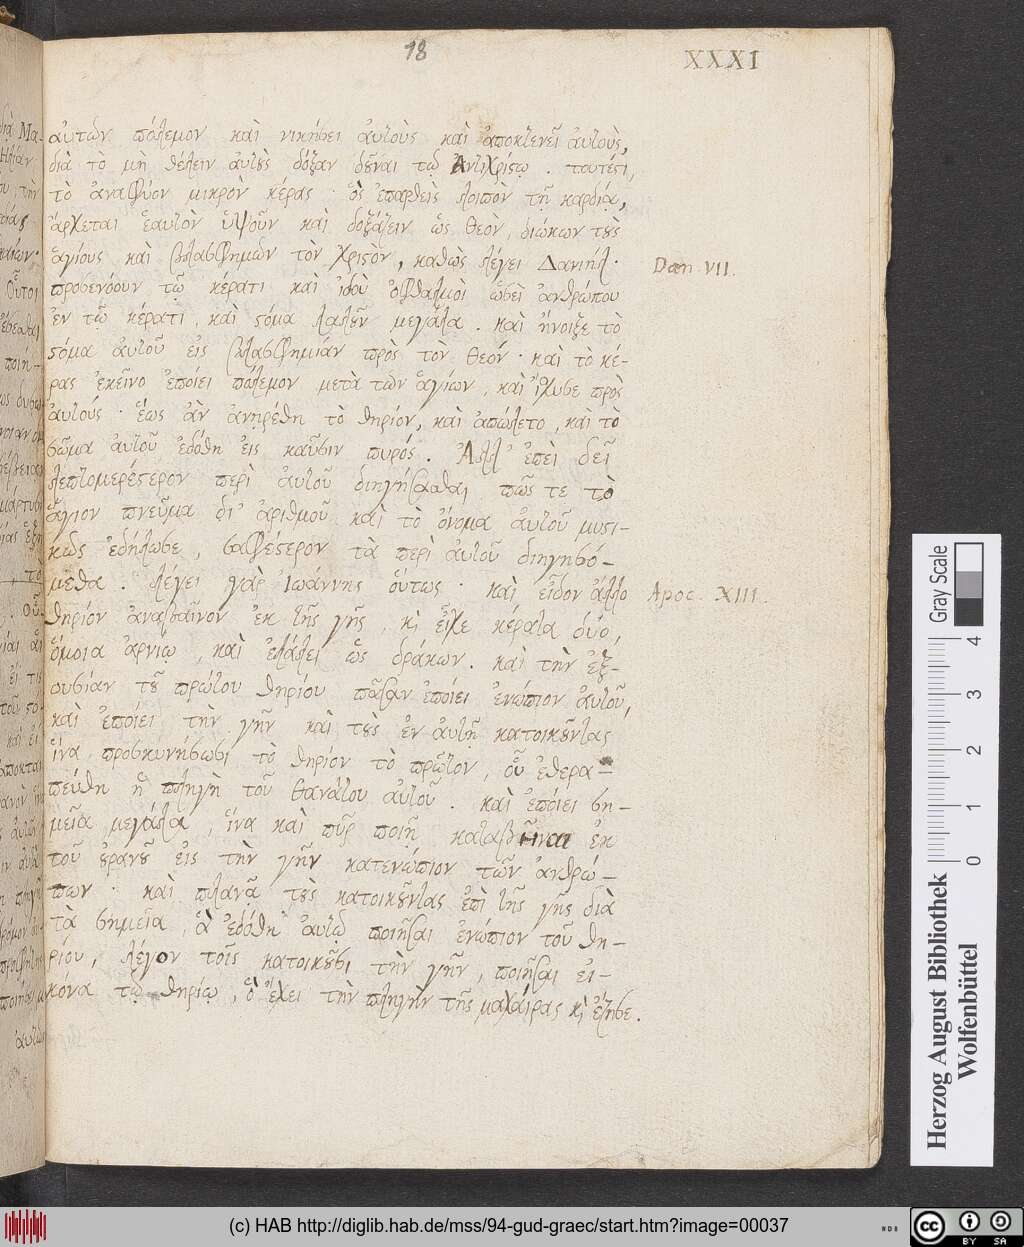 18
XXXI
αὐτῶν πόλεμον καὶ νικήσει αὐτοὺς καὶ ἀποκτενεῖ αὐτοὺς,
διὰ τὸ μὴ θέλειν αὐτοὺς δόξαν δοῦναι τῷ Ἀντιχρίστῳ . ταυτέστι,
τὸ ἀναφύον μικρὸν κέρας · ὃς ἐπαρθεὶς λοιπὸν τῇ καρδίᾳ,
ἄρχεται ἑαυτὸν ὑψοῦν καὶ δοξάζειν ὡς θεὸν, διώκων τοὺς
ἁγίους καὶ βλασφημῶν τὸν χριστὸν, καθὼς λέγει Δανιήλ ·
Dan. VII.
προσενόουν τῷ κέρατι καὶ ἰδοὺ ὀφθαλμοὶ ὡσεὶ ἀνθρώπου
ἐν τῷ κέρατι, καὶ στόμα λαλοῦν μεγάλα . καὶ ἤνοιξε τὸ
στόμα αὐτοῦ εἰς βλασφημίαν πρὸς τὸν θεόν · καὶ τὸ κέ-
ρας ἐκεῖνο ἐποίει πόλεμον μετὰ τῶν ἁγίων, καὶ ἴχυσε πρὸς
αὐτούς · ἕως ἂν ἀνῃρέθη τὸ θηρίον, καὶ ἀπώλετο, καὶ τὸ
σῶμα αὐτοῦ ἐδόθη εἰς καῦσιν πυρός. Ἀλλ' ἐπεὶ δεῖ
λεπτομερέστερον περὶ αὐτοῦ διηγήσασθαι πῶς τε τὸ
ἅγιον πνεῦμα δι' ἀριθμοῦ καὶ τὸ ὄνομα αὐτοῦ μυστι-
κῶς ἐδήλωσε, σαφέστερον τὰ περὶ αὐτοῦ διηγησό-
μεθα . λέγει γὰρ Ἰωάννης οὕτως · καὶ εἶδον ἄλλο
Apoc. XIII.
θηρίον ἀναβαῖνον ἐκ τῆς γῆς, κὶ εἶχε κέρατα δύο,
ὅμοια ἀρνίῳ, καὶ ἐλάλει ὡς δράκων. καὶ τὴν ἐξ-
ουσίαν τοῦ πρώτου θηρίου πᾶσαν ἐποίει ἐνώπιον αὐτοῦ,
καὶ ἐποίει τὴν γῆν καὶ τοὺς ἐν αὐτῇ κατοικοῦντας
ἵνα προσκυνήσωσι τὸ θηρίον τὸ πρῶτον, οὗ ἐθερα-
πεύθη ἡ πληγὴ τοῦ θανάτου αὐτοῦ . καὶ ἐποίει ση-
μεῖα μεγάλα, ἵνα καὶ πῦρ ποιῇ καταβῆναι ἐκ
τοῦ οὐρανοῦ εἰς τὴν γῆν κατενώπιον τῶν ἀνθρώ-
πων · καὶ πλανᾷ τοὺς κατοικοῦντας ἐπὶ τῆς γῆς διὰ
τὰ σημεῖα, ἃ ἐδόθη αὐτῷ ποιῆσαι ἐνώπιον τοῦ θη-
ρίου, λέγον τοῖς κατοικοῦσι τὴν γῆν, ποιῆσαι εἰ-
κόνα τῷ θηρίῳ, ὃ ἔχει τὴν πληγὴν τῆς μαχαίρας κὶ ἔζησε.
Gray Scale
0 1 2 3 4
Herzog August Bibliothek
Wolfenbüttel
(c) HAB http://diglib.hab.de/mss/94-gud-graec/start.htm?image=00037
WDB
cc BY SA